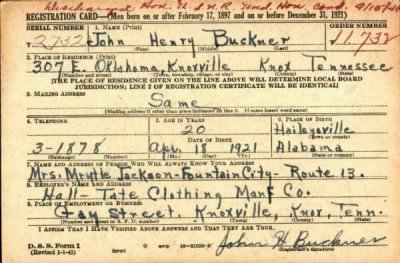 Discharged Hon. U.S.N.R. Under Hon. Cond.
REGISTRATION CARD—(Men born on or after February 17, 1897 and on or before December 31, 1921)
SERIAL NUMBER 1. NAME (Print) ORDER NUMBER
2732 John Henry Buckner 11,732
(First) (Middle) (Last)
2. PLACE OF RESIDENCE (Print)
307 E. Oklahoma, Knoxville Knox Tennessee
(Number and street) (Town, township, village, or city) (County) (State)
[THE PLACE OF RESIDENCE GIVEN ON THE LINE ABOVE WILL DETERMINE LOCAL BOARD
JURISDICTION; LINE 2 OF REGISTRATION CERTIFICATE WILL BE IDENTICAL]
3. MAILING ADDRESS
Same
(Mailing address if other than place indicated on line 2. If same insert word same)
4. TELEPHONE 5. AGE IN YEARS 6. PLACE OF BIRTH
20 Haileysville
DATE OF BIRTH (Town or county)
3-1878 Apr. 18 1921 Alabama
(Mo.) (Day) (Yr.) (State or country)
7. NAME AND ADDRESS OF PERSON WHO WILL ALWAYS KNOW YOUR ADDRESS
Mrs. Mrytle Jackson-Fountain City-Route 13.
8. EMPLOYER'S NAME AND ADDRESS
Hall-Tate Clothing Manf Co.
9. PLACE OF EMPLOYMENT OR BUSINESS
Gay Street. Knoxville, Knox, Tenn.
(Number and street or R. F. D. number) (Town) (County) (State)
I AFFIRM THAT I HAVE VERIFIED ABOVE ANSWERS AND THAT THEY ARE TRUE.
D. S. S. Form 1
(Revised 1-1-42) (over) John H Buckner
(Registrant's signature)